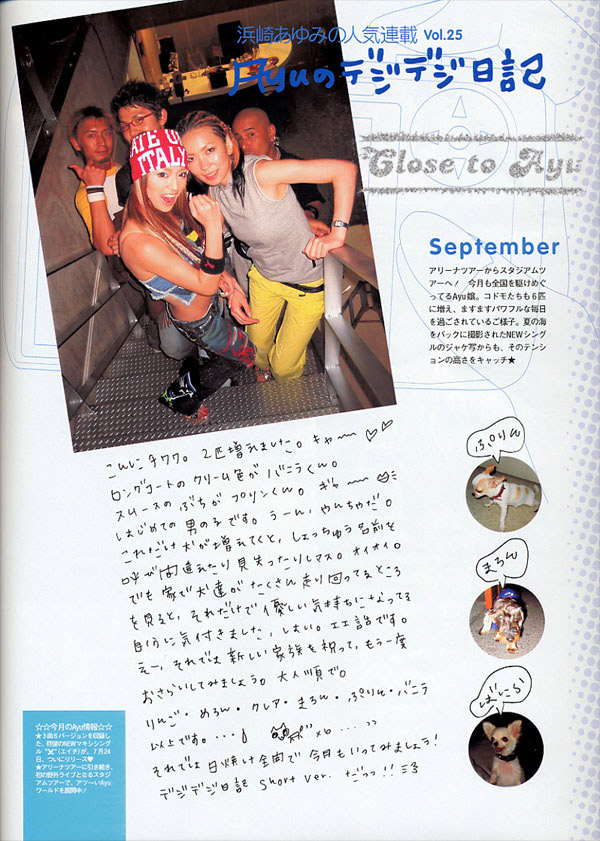 浜崎あゆみの人気連載 Vol.25
Ayuのデジデジ日記
Close to Ayu
ATE UP
ITALY
September
アリーナツアーからスタジアムツ
アーへ! 今月も全国を駆けめぐ
ってるAyu嬢。コドモたちも6匹
に増え、ますますパワフルな毎日
を過ごされているご様子。夏の海
をバックに撮影されたNEWシング
ルのジャケ写からも、そのテンシ
ョンの高さをキャッチ★
こんにチワワ。2匹増えました。キャ〜〜♡♡
ロングコートのクリーム色がバニラくん。
スムースのぶちがプリンくん。ギャ〜〜
はじめての男の子です。うーん、やんちゃだ。
これだけ犬が増えてくと、しょっちゅう名前を
呼び間違えたり見失ったりしマス。オイオイ。
でも家で犬達がたくさん走り回ってるところ
を見ると、それだけで優しい気持ちになってる
自分に気付きました、しみじみ。エエ話です。
えー、それでは新しい家族を祝って、もう一度
おさらいしてみましょう。大人順で。
りんご・めろん・クレア・まろん・ぷりん・バニラ
以上です。・・・ ×6 ...
それでは日焼け全開で今月もいってみましょう!
デジデジ日記 short ver. だっっ!!
ぷりん
まろん
ばにら
☆☆今月のAyu情報☆☆
★3曲6バージョンを収録し
た、待望のNEWマキシシング
ル“H”(エイチ)が、7月24
日、ついにリリース♥
★アリーナツアーに引き続き、
初の野外ライブとなるスタジ
アムツアーで、アツ〜いAyu
ワールドを展開中!